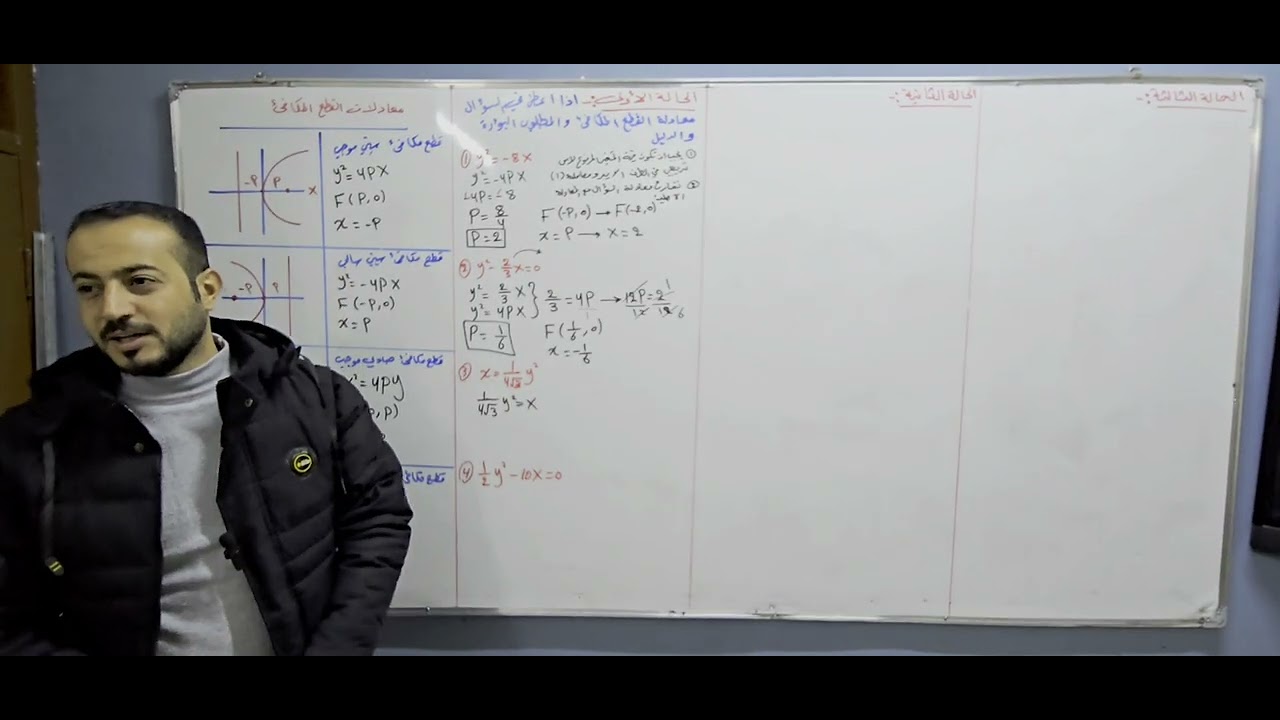 معادلات القطع المكافئ
قطع مكافئ سيني موجب
y² = 4PX
F(P,0)
x = -P
-P P X
قطع مكافئ سيني سالب
y² = -4PX
F(-P,0)
x = P
-P P
قطع مكافئ صادي موجب
= 4Py
, P)
قطع مكافئ
الحالة الأولى:- اذا اعطى في السؤال
معادلة القطع المكافئ والمطلوب البؤرة
والدليل
① y² = -8X
y² = -4PX
-4P = -8
P = 8/4
P = 2
①
②
F(-P,0) → F(-2,0)
x = P → X = 2
② y² - 2/3 X = 0
y² = 2/3 X
y² = 4PX
2/3 = 4P → 12P/12 = 2/12 1 6
P = 1/6
F(1/6,0)
x = -1/6
③ x = 1/4√3 y²
1/4√3 y² = X
④ 1/2 y² - 10X = 0
الحالة الثانية:-
الحالة الثالثة:-